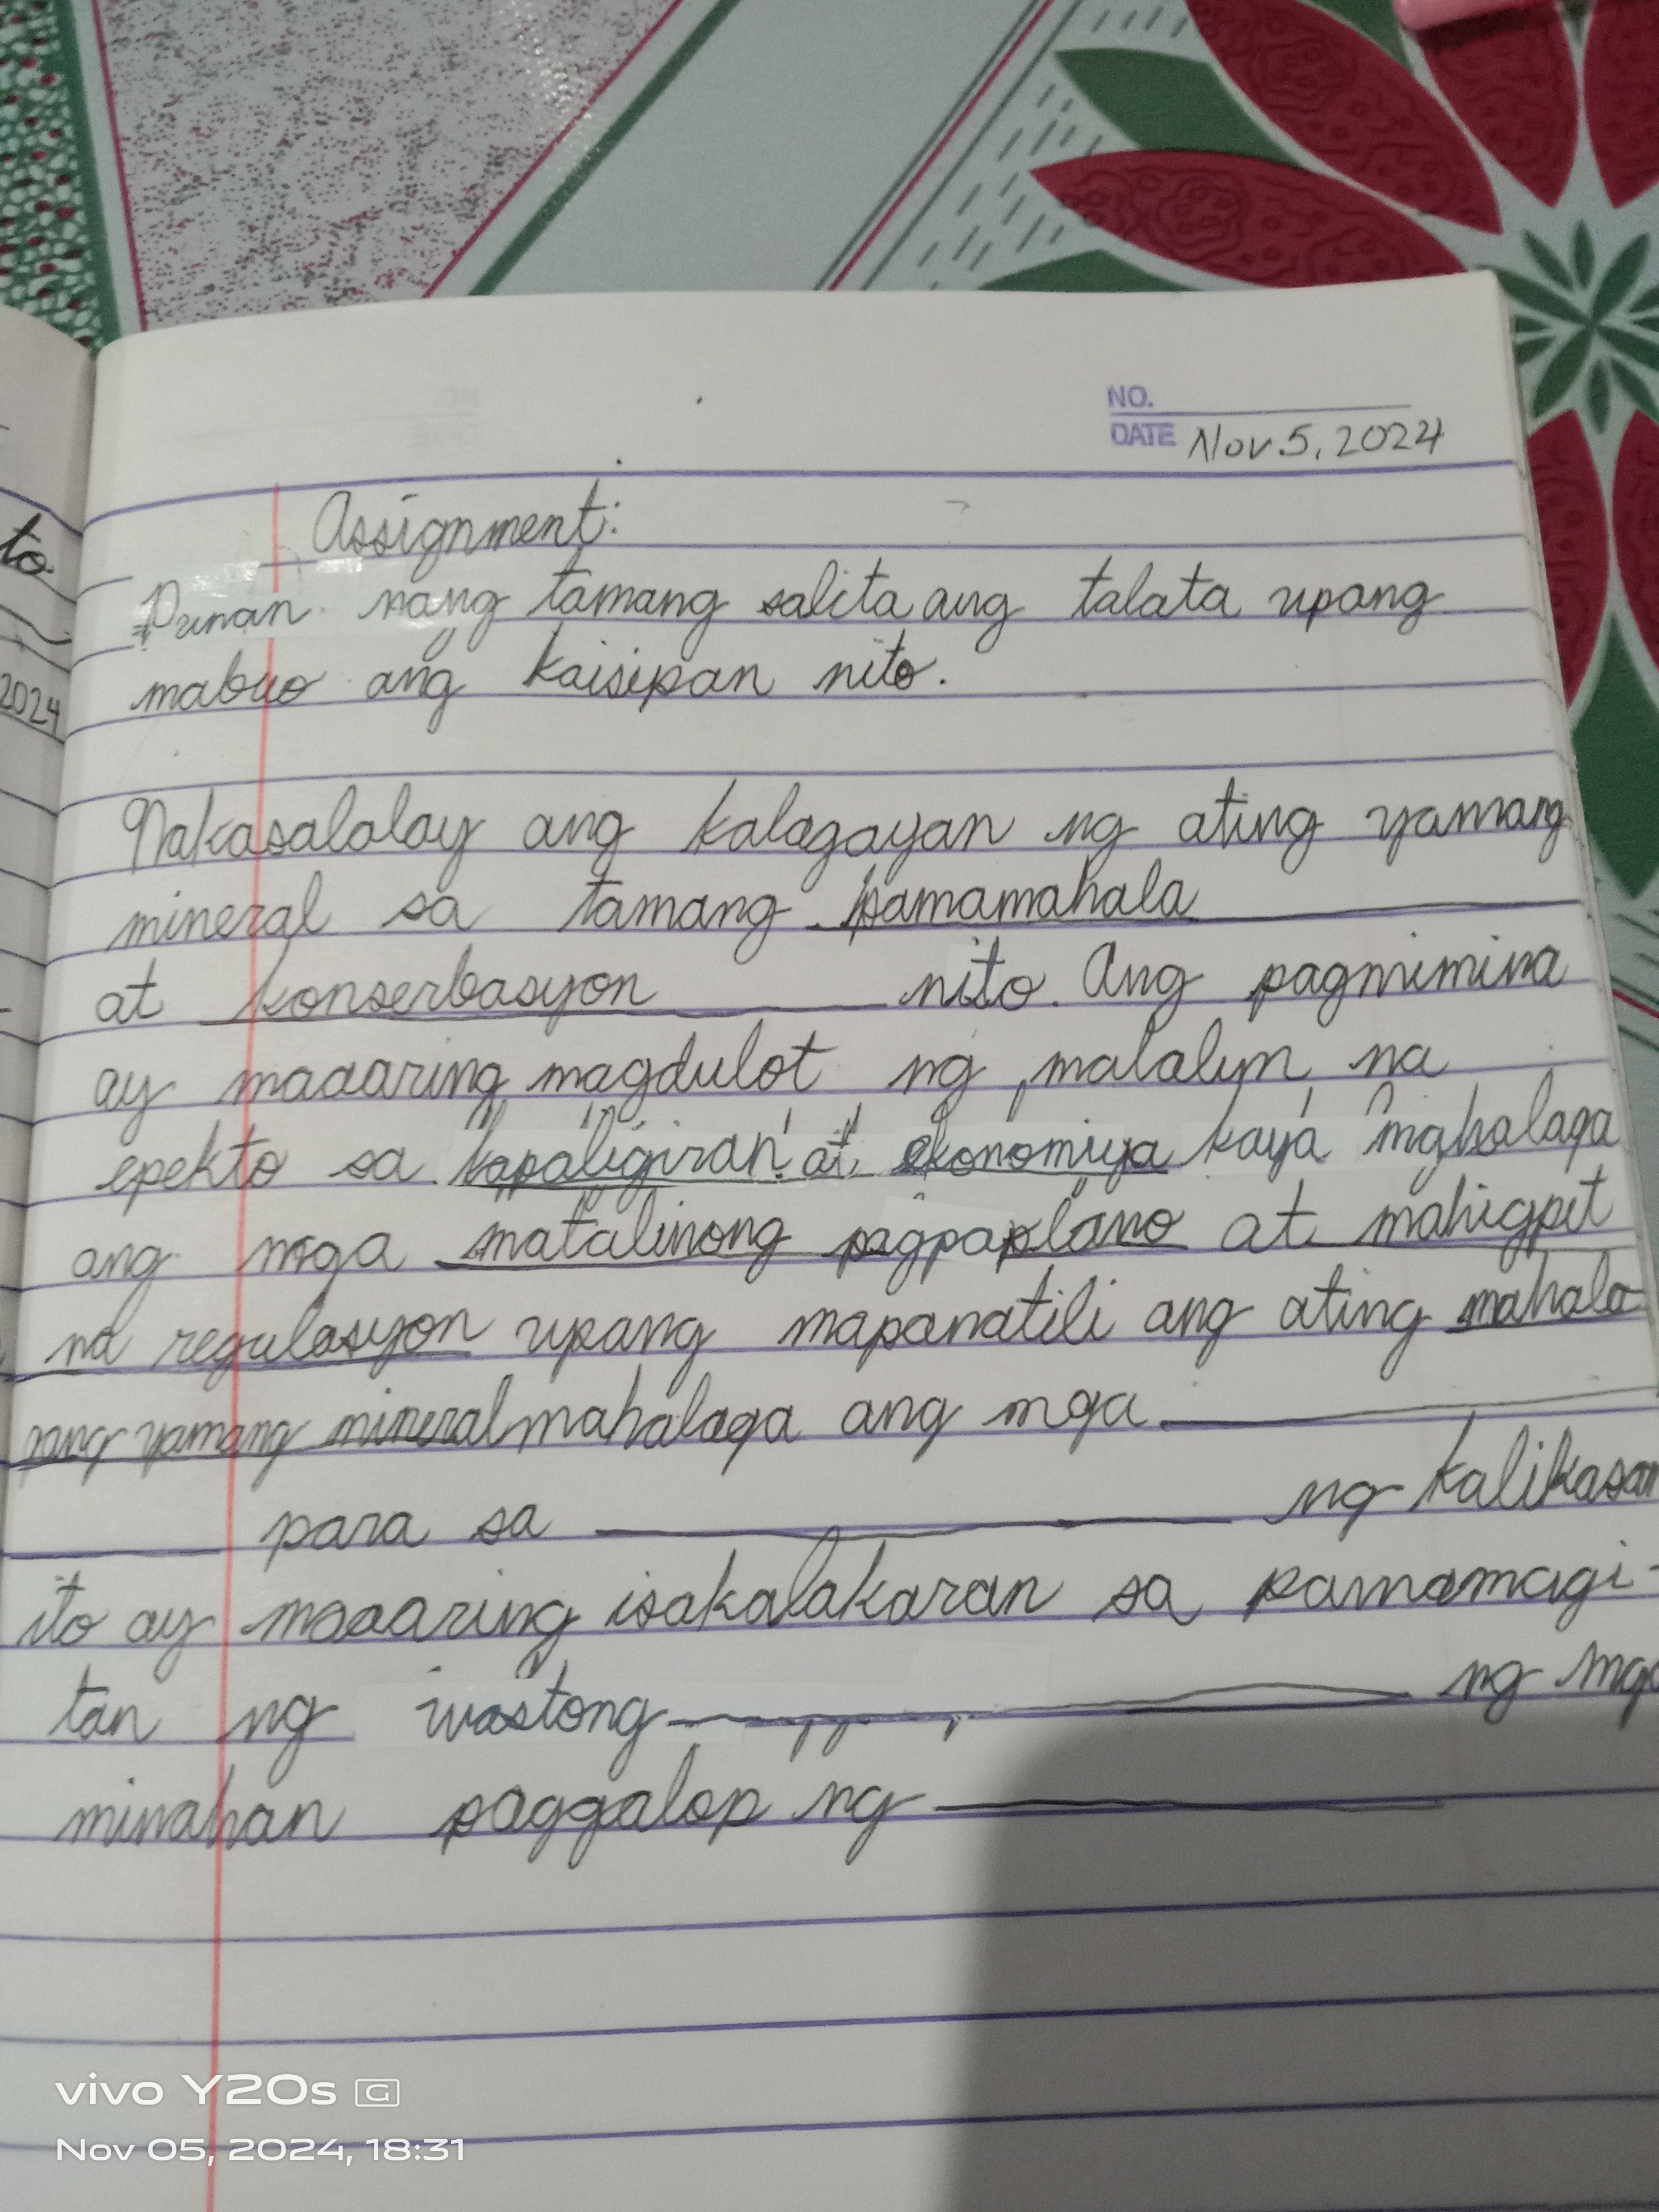 to
2024
NO.
DATE Nov. 5, 2024
Assignment:
Punan nang tamang salita ang talata upang
mabuo ang kaisipan nito.
Nakasalalay ang kalagayan ng ating yamang
mineral sa tamang pamamahala
at konserbasyon nito. Ang pagmimina
ay maaaring magdulot ng malalim na
epekto sa kapaligiran at ekonomiya kaya mghalaga
ang mga matalinong pagpaplano at mahigpit
na regulasyon upang mapanatili ang ating mahala
gang yamang mineral mahalaga ang mga
para sa ng kalikasan
ito ay maaaring isakalakaran sa pamamagi-
tan ng wastong ng mga
minahan paggalap ng
vivo Y20s G
Nov 05, 2024, 18:31